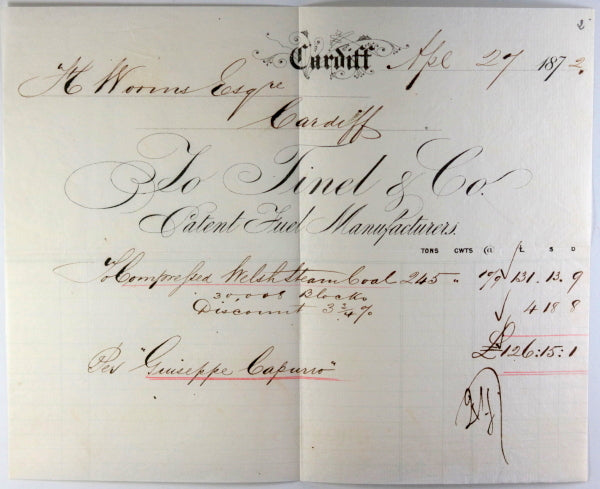 2
Cardiff Apl 27 1872
H Worms Esqre
Cardiff
To Tinel & Co.
Patent Fuel Manufacturers.
TONS CWTS @ £ S D
To Compressed Welsh Steam Coal 245 " 10/9 131.13.9
30,008 Blocks
Discount 3 3/4 % 4 18 8
£126:15:1
Per "Giuseppe Capurro"